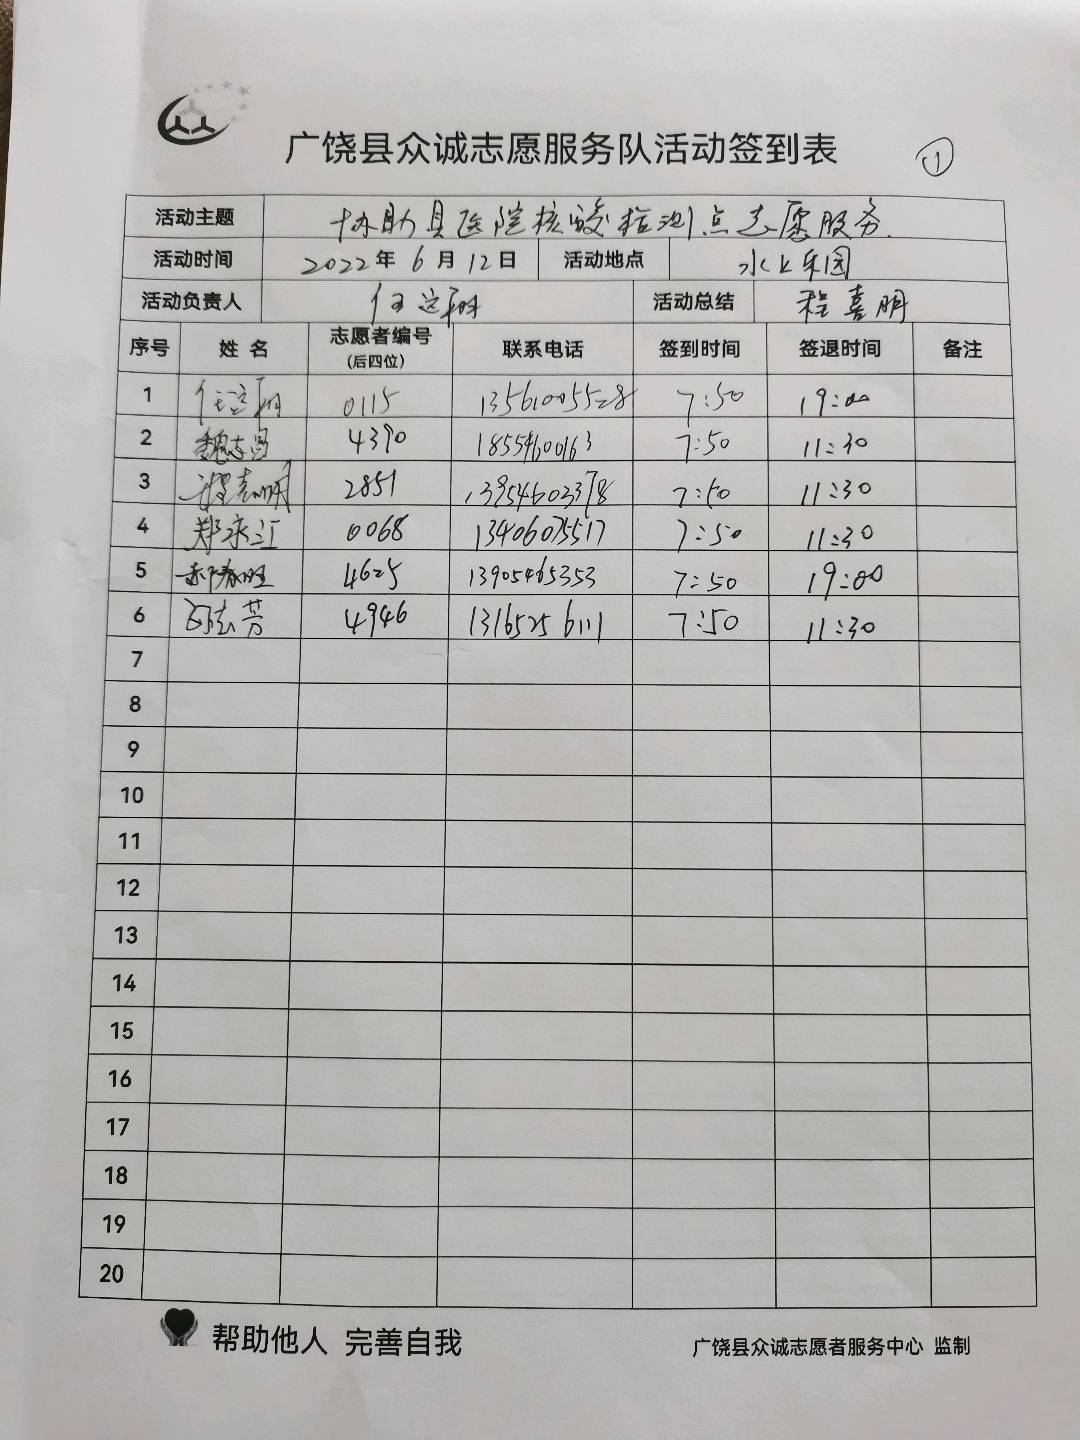 广饶县众诚志愿服务队活动签到表
①
活动主题 协助县医院核酸检测点志愿服务.
活动时间 2022年 6月 12日 活动地点 水上乐园
活动负责人 活动总结 程喜明
序号 姓名 志愿者编号(后四位) 联系电话 签到时间 签退时间 备注
1 0115 13561005528 7:50 19:00
2 魏志昌 4390 18554600163 7:50 11:30
3 2851 13954602378 7:50 11:30
4 郑永江 0068 13406075517 7:50 11:30
5 4625 13905465353 7:50 19:00
6 4946 13165256111 7:50 11:30
7
8
9
10
11
12
13
14
15
16
17
18
19
20
帮助他人 完善自我
广饶县众诚志愿者服务中心 监制